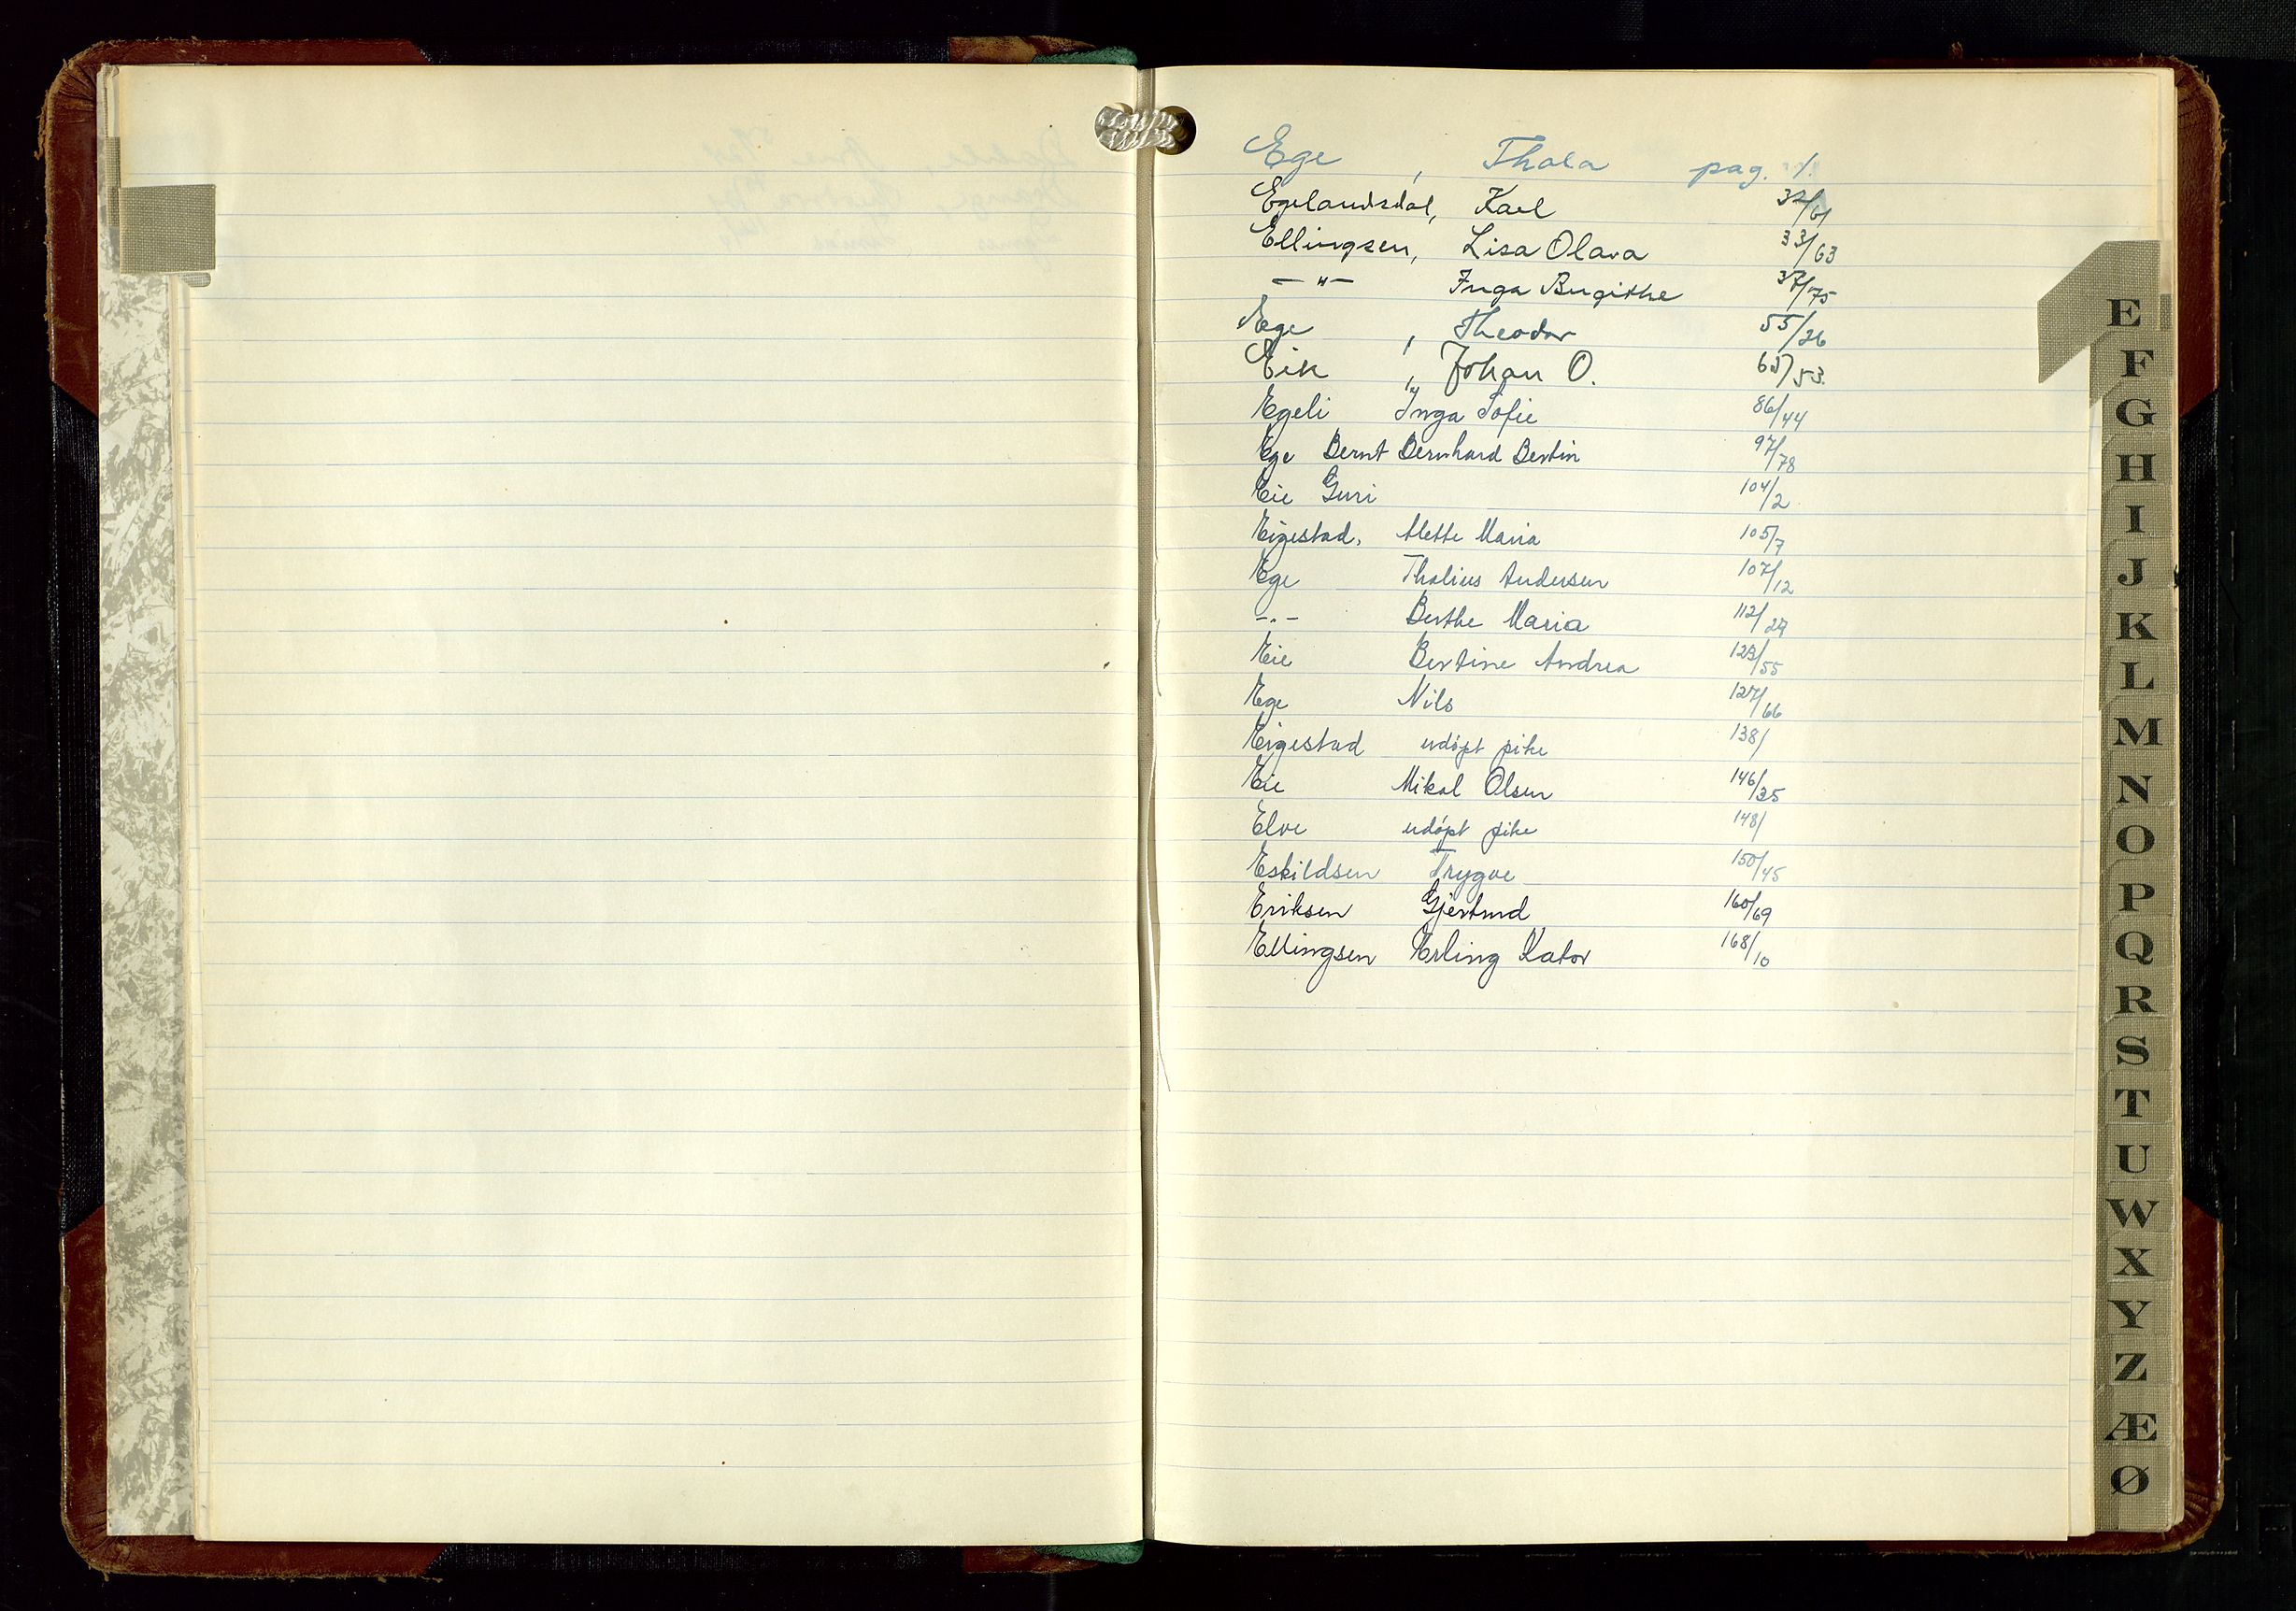 Ege , Thala pag. 1.
Egelandsdal, Karl 32/61
Ellingsen, Lisa Olava 33/63
— " — Inga Birgithe 37/75
Ege , Theodor 55/26
Eik , Johan O. 65/53.
Egeli Inga Sofie 86/44
Ege Bernt Bernhard Bertin 97/78
Eie Guri 104/2
Eigestad, Mette Maria 105/7
Ege Thalius Andersen 107/12
-"- Berthe Maria 112/29
Eie Bertine Andrea 123/55
Ege Nils 127/66
Eigestad udöpt pike 138/
Eie Mikal Olsen 146/35
Elve udöpt pike 148/
Eskildsen Trygve 150/45
Eriksen Gjertrud 160/69
Ellingsen Erling Kator 168/10
E
F
G
H
I
J
K
L
M
N
O
P
Q
R
S
T
U
W
X
Y
Z
Æ
Ø